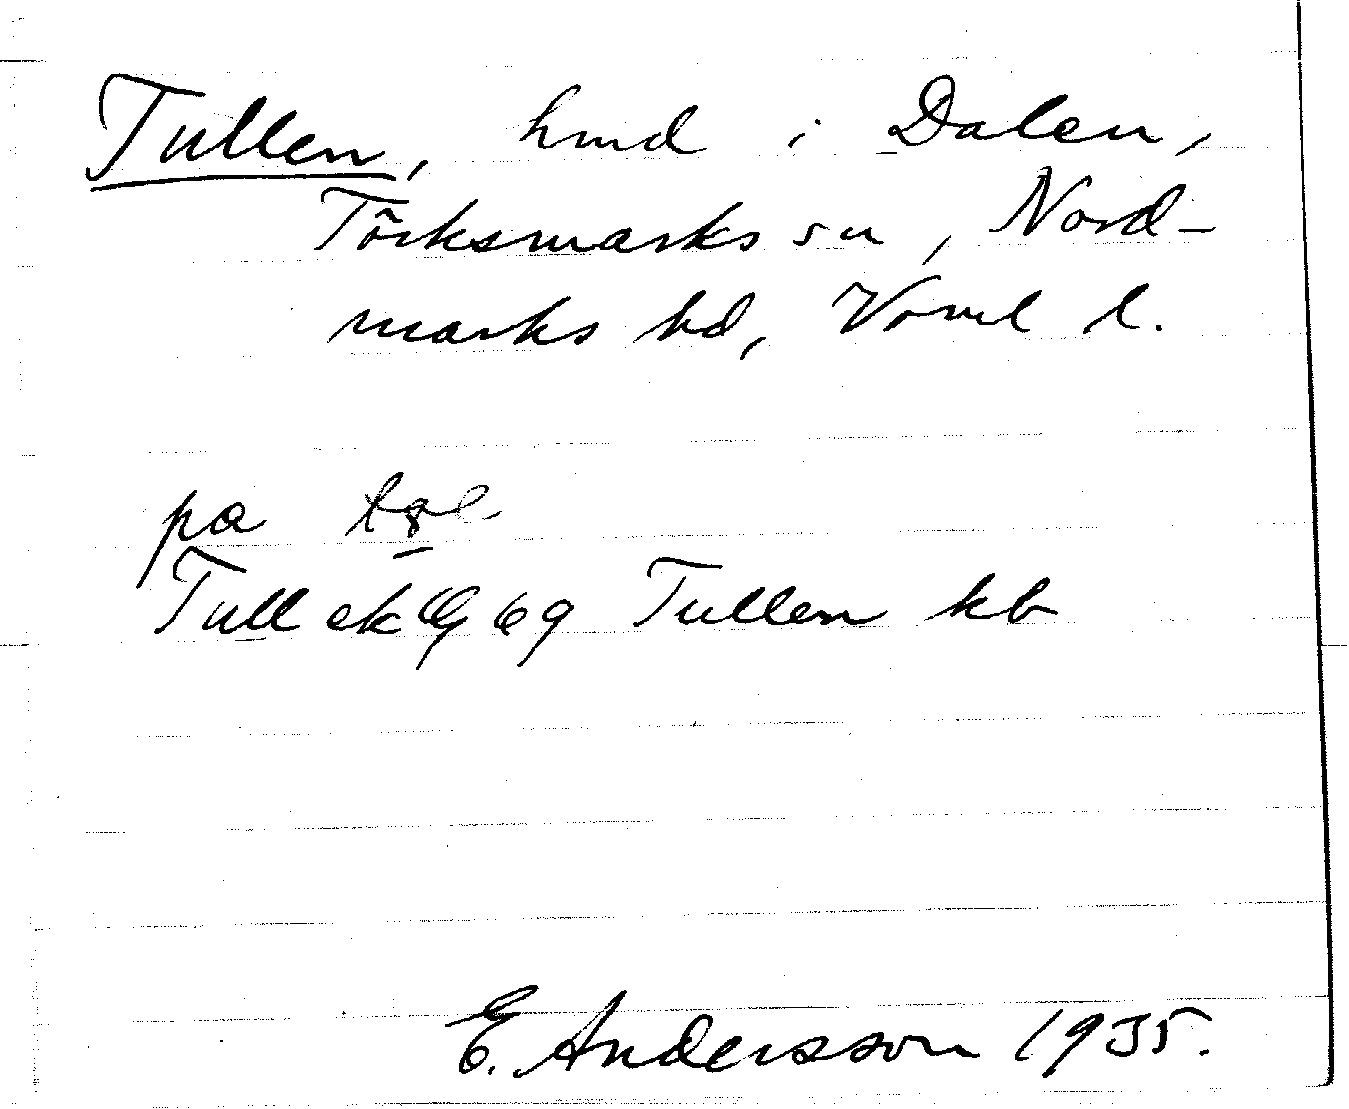 Tullen, hmd i Dalen,
Törksmarks sn, Nord-
marks hd, Värml l.
på
Tull ek 69 Tullen kb
E. Andersson 1935.